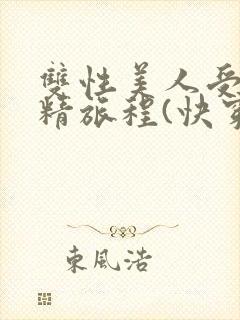 雙性美人受
精旅程(快穿
東風浩